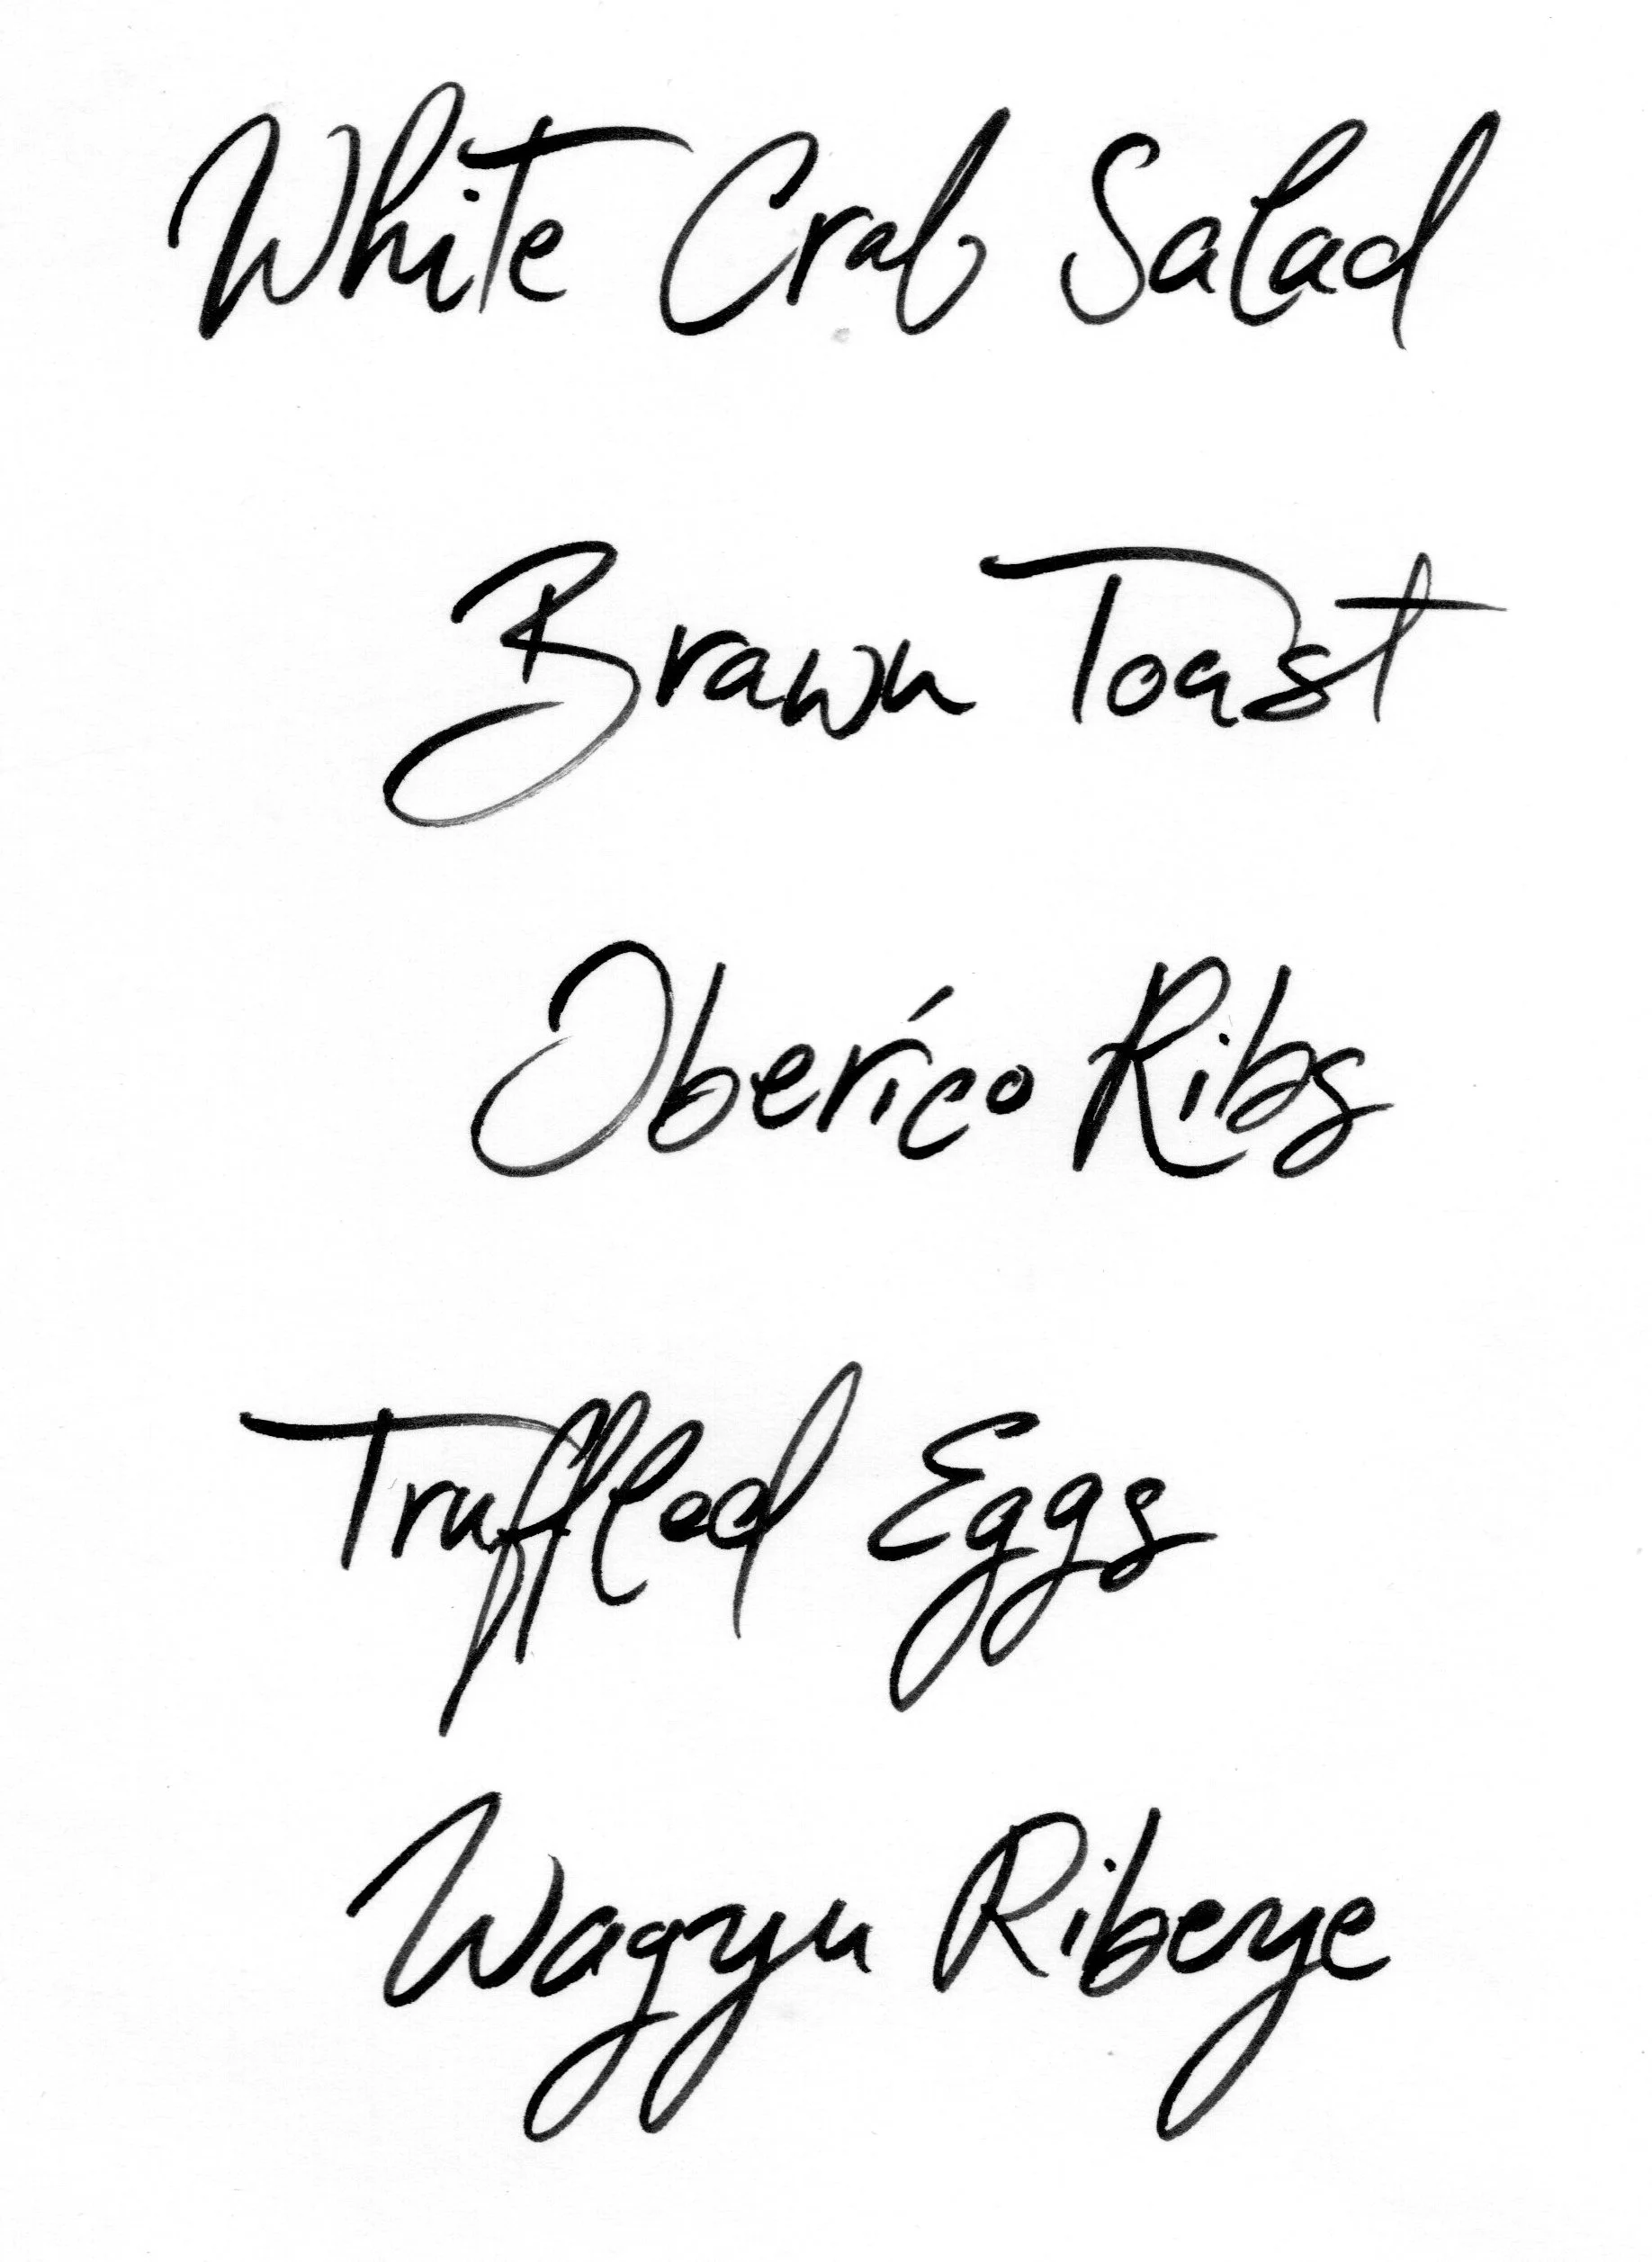 White Crab Salad
Brawn Toast
Iberíco Ribs
Truffled Eggs
Wagyu Ribeye